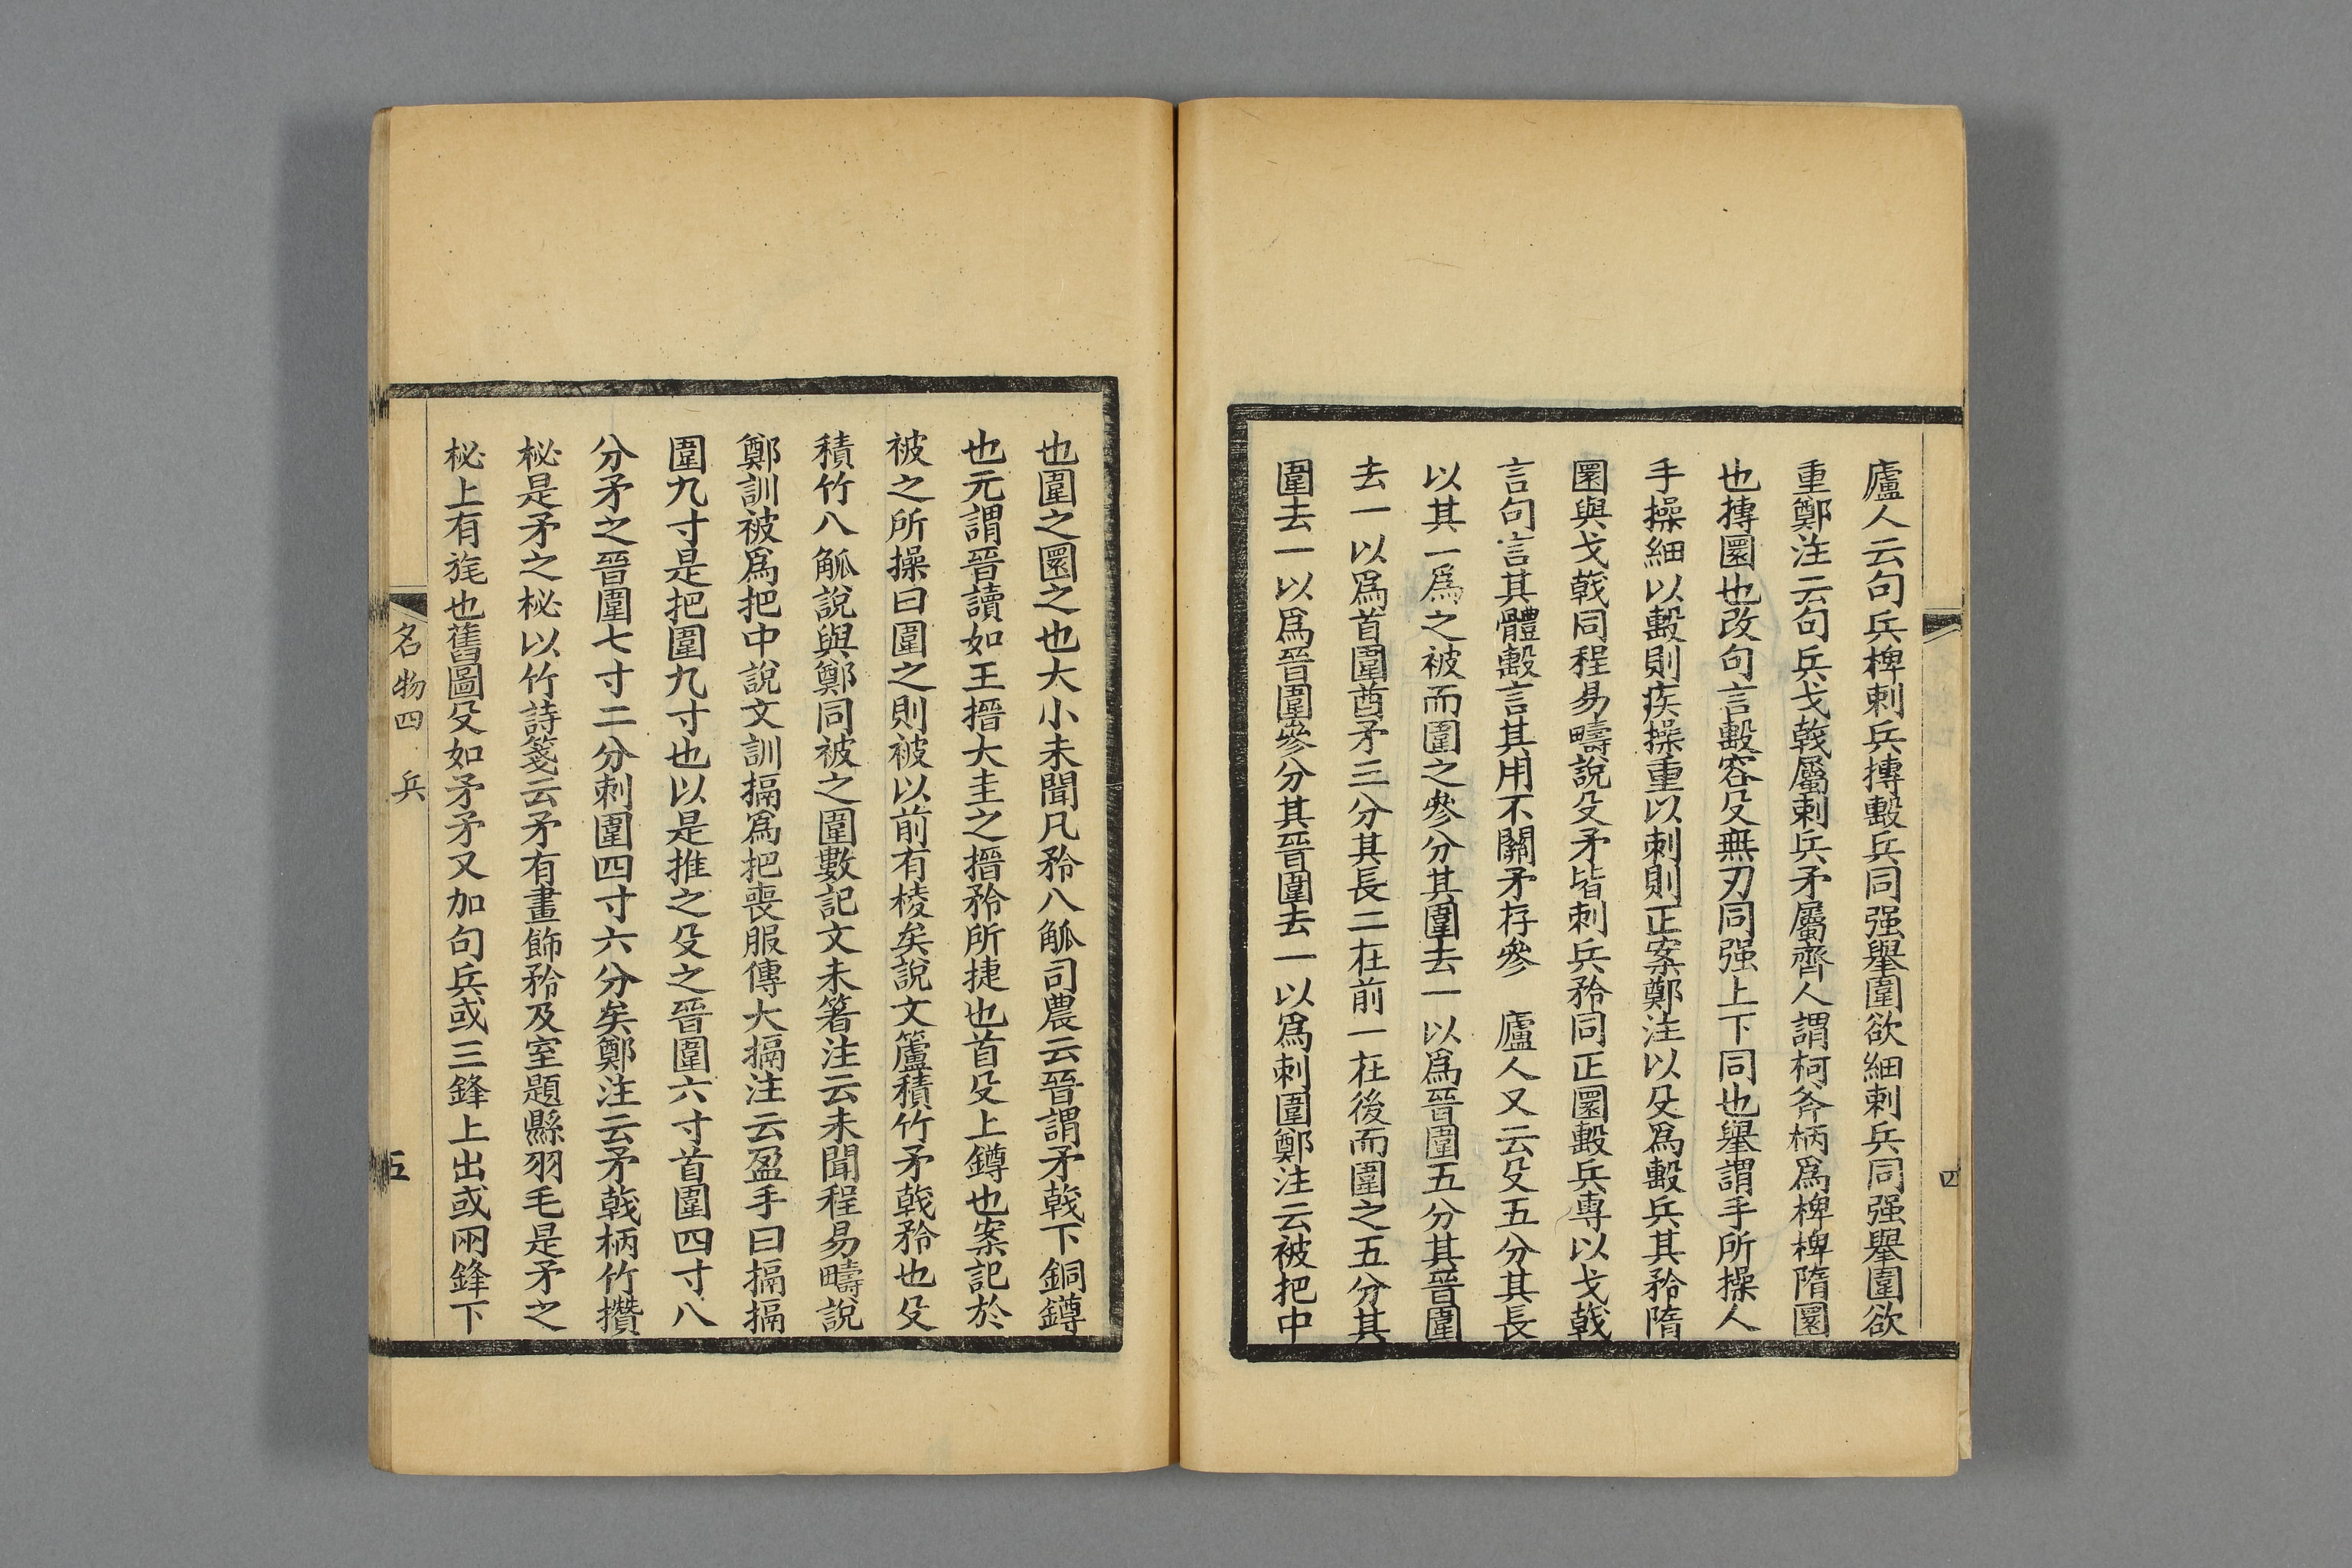 廬人云句兵椑刺兵摶毄兵同强舉圍欲細刺兵同强舉圍欲
重鄭注云句兵戈戟屬刺兵矛屬齊人謂柯斧柄爲椑椑隋圜
也摶圜也改句言毄容殳無刃同强上下同也舉謂手所操人
手操細以毄則疾操重以刺則正案鄭注以殳爲毄兵其矜隋
圜與戈戟同程易疇說殳矛皆刺兵矜同正圜毄兵專以戈戟
言句言其體毄言其用不關矛存參　廬人又云殳五分其長
以其一爲之被而圍之參分其圍去一以爲晉圍五分其晉圍
去一以爲首圍酋矛三分其長二在前一在後而圍之五分其
圍去一以爲晉圍參分其晉圍去一以爲刺圍鄭注云被把中
四
也圍之圜之也大小未聞凡矜八觚司農云晉謂矛戟下銅鐏
也元謂晉讀如王搢大圭之搢矜所捷也首殳上鐏也案記於
被之所操曰圍之則被以前有棱矣說文籚積竹矛戟矜也殳
積竹八觚說與鄭同被之圍數記文未箸注云未聞程易疇說
鄭訓被爲把中說文訓搹爲把喪服傳大搹注云盈手曰搹搹
圍九寸是把圍九寸也以是推之殳之晉圍六寸首圍四寸八
分矛之晉圍七寸二分刺圍四寸六分矣鄭注云矛戟柄竹攢
柲是矛之柲以竹詩箋云矛有畫飾矜及室題縣羽毛是矛之
柲上有旄也舊圖殳如矛矛又加句兵或三鋒上出或兩鋒下
名物四　兵
五